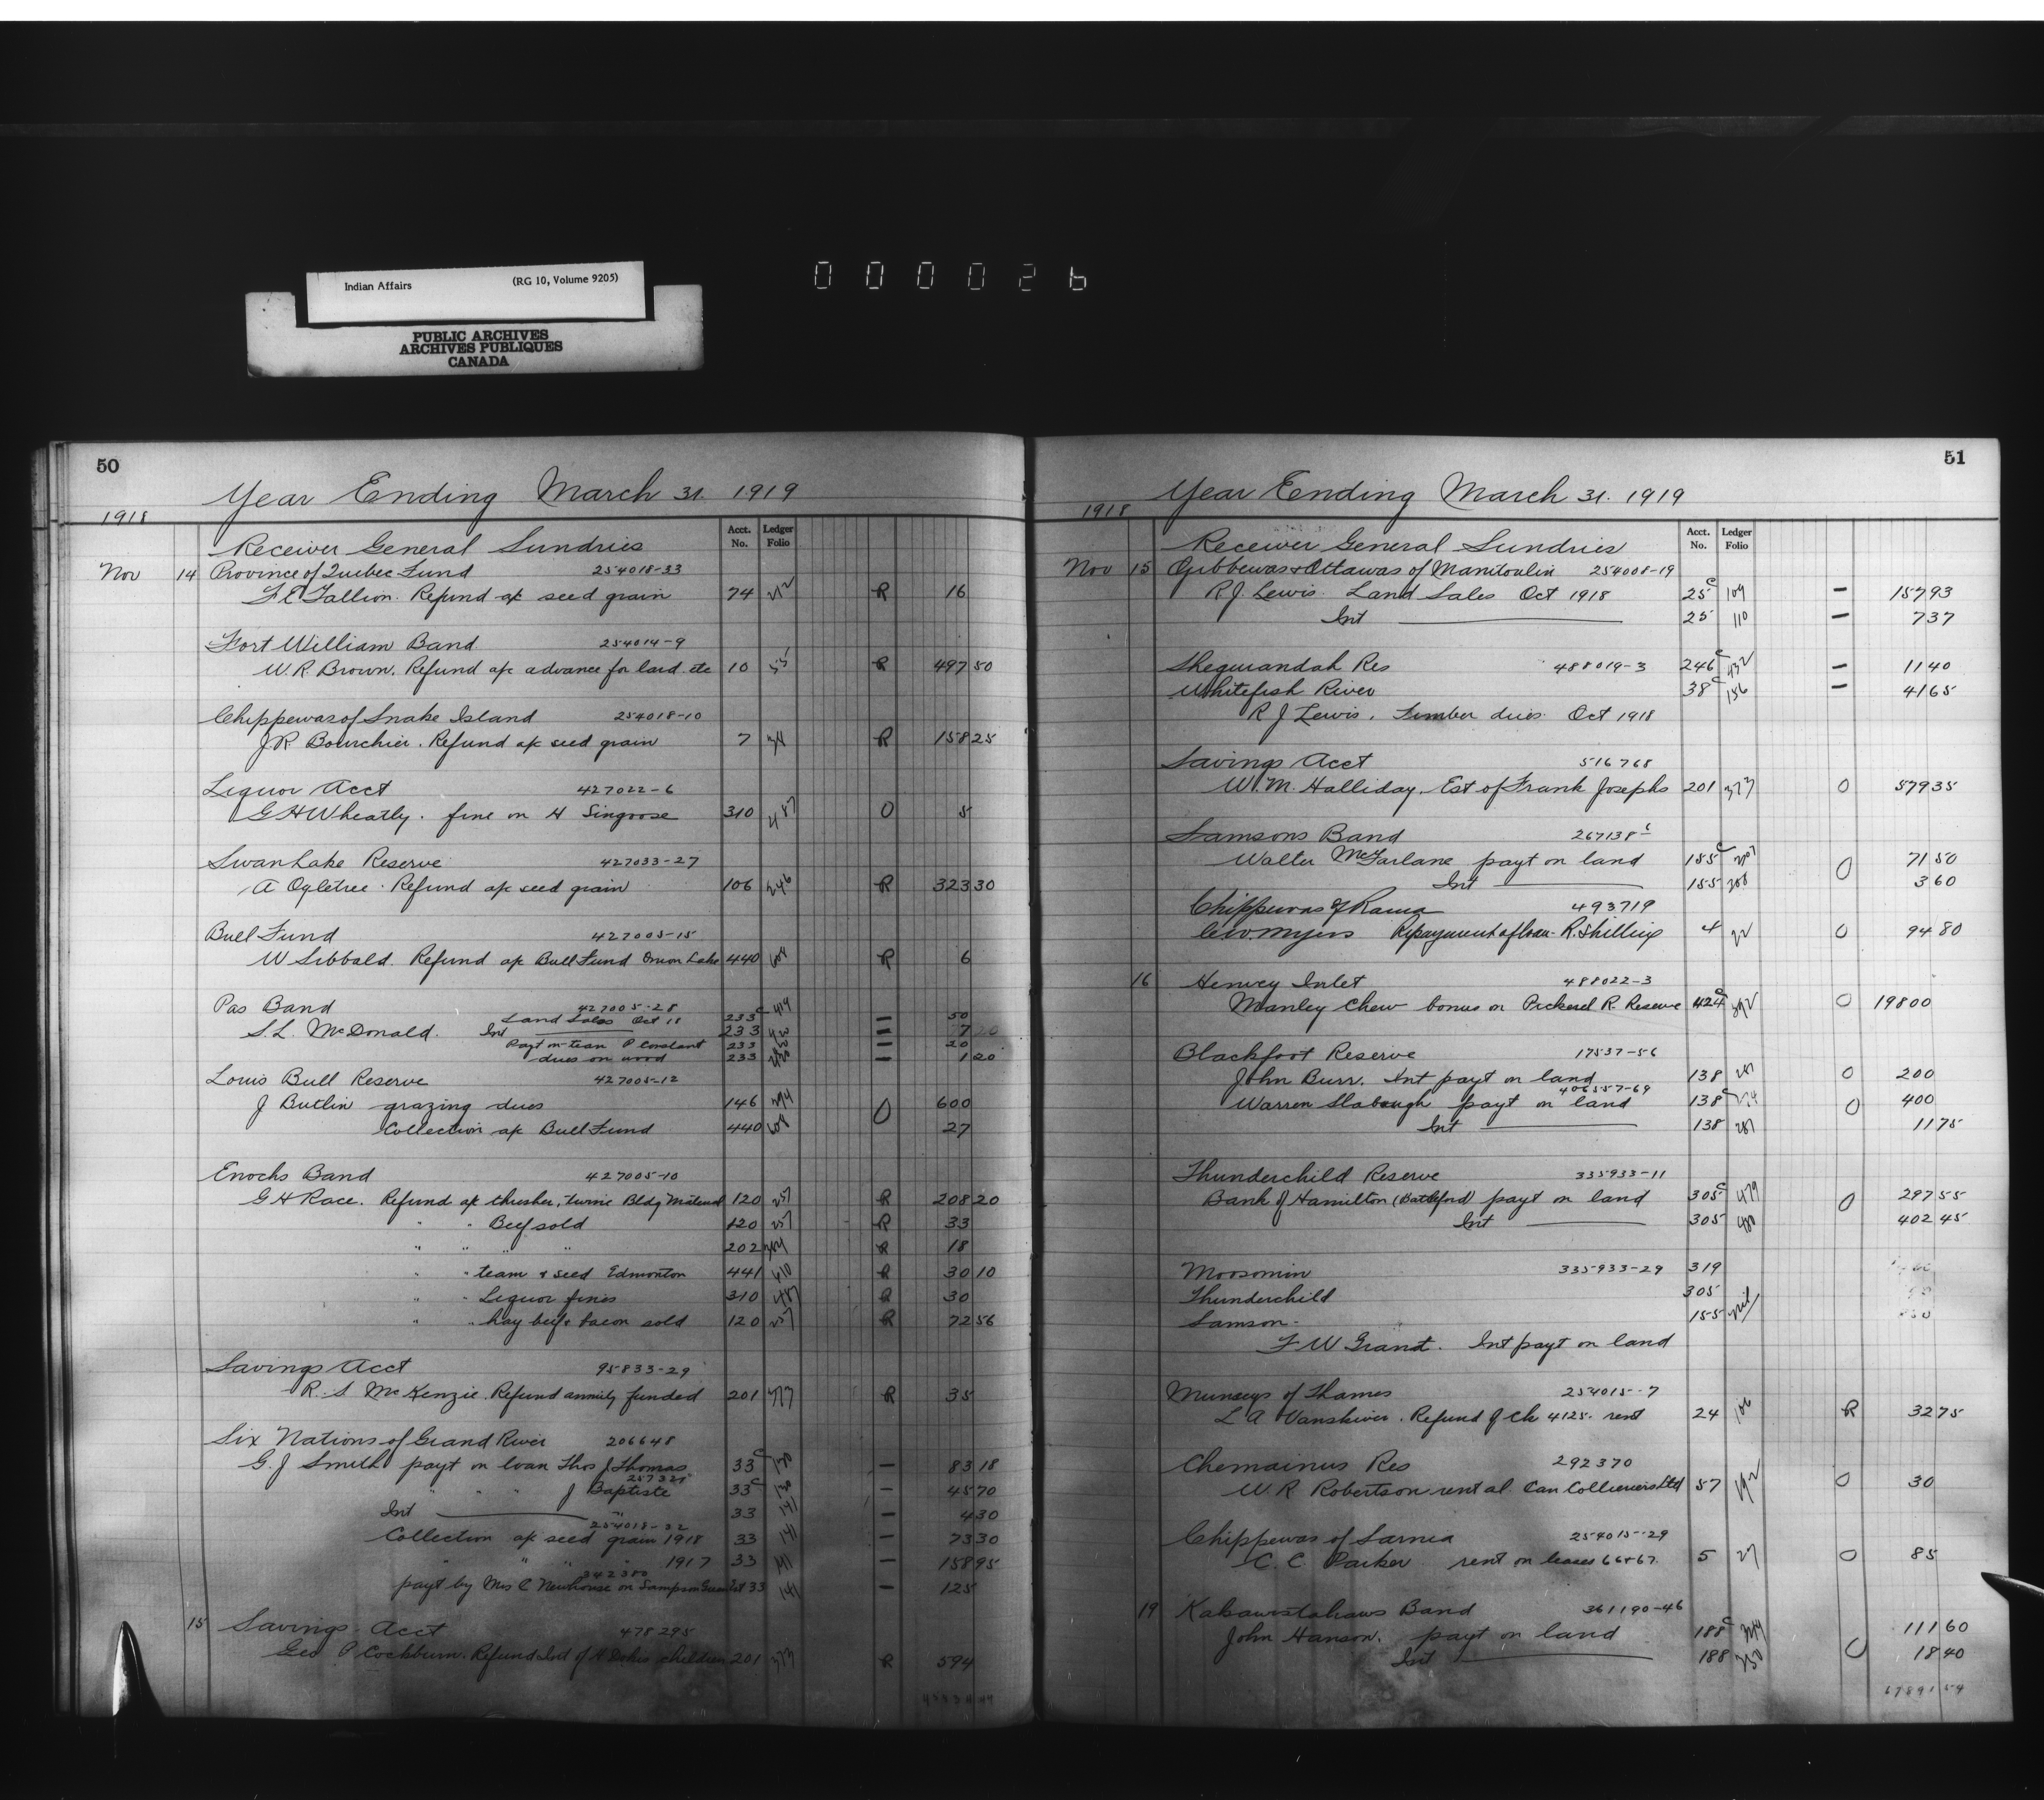 Indian Affairs (RG 10, Volume 9205)
PUBLIC ARCHIVES
ARCHIVES PUBLIQUES
CANADA
000026
50
Year Ending March 31. 1919
1918
Acct. No. Ledger Folio
Receiver General Sundries
Nov 14 Province of Quebec Fund 254018-33
Refund a/c seed grain 74 212 R 16
Fort William Band 254014-9
W. R. Brown. Refund a/c advance for land etc 10 55 R 497 50
Chippewas of Snake Island 254018-10
J. R. Bourchier. Refund a/c seed grain 7 34 R 158 25
Liquor Acct 427022-6
G H Wheatly. fine on H Singoose 310 487 O 5
Swan Lake Reserve 427033-27
A Ogletree. Refund a/c seed grain 106 246 R 323 30
Bull Fund 427005-15
W Sibbald. Refund a/c Bull Fund Onion Lake 440 608 R 6
Pas Band 427005-28
Land Sales Oct 18 233c 419 — 50
S. L. McDonald. Int 233 420 — 7 20
Payt on team P Constant 233 — 20
dues on wood 233 — 1 20
Louis Bull Reserve 427005-12
J Butlin grazing dues 146 294 O 600
Collection a/c Bull Fund 440 608 27
Enochs Band 427005-10
G H Race. Refund a/c thresher, twine Bldg Material 120 257 R 208 20
" " Beef sold 120 257 R 33
" " " " 202 364 R 18
" " team & seed Edmonton 441 610 R 30 10
" " Liquor fines 310 487 R 30
" " hay beef & bacon sold 120 257 R 72 56
Savings Acct 95833-29
R. S McKenzie. Refund annuity funded 201 373 R 35
Six Nations of Grand River 206648
G. J Smith payt on loan Thos J Thomas 33c 130 — 83 18
" " " J Baptiste 33c 130 — 45 70
Int " 33 141 — 4 30
254018-32
Collection a/c seed grain 1918 33 141 — 73 30
" " " " 1917 33 141 — 158 95
342380
payt by Mrs C Newhouse on Sampson Green Est 33 141 — 125
15 Savings Acct 478295
Geo P Cockburn. Refund Ind of H Dokis children 201 373 R 594
51
Year Ending March 31. 1919
1918
Acct. No. Ledger Folio
Receiver General Sundries
Nov 15 Ojibbewas & Ottawas of Manitoulin 254008-19
R J. Lewis. Land Sales Oct 1918 25c 109 — 157 93
Int 25 110 — 7 37
Sheguiandah Res 488019-3 246c 432 — 11 40
Whitefish River 38c 156 — 41 65
R J Lewis. Timber dues Oct 1918
Savings Acct 516768
W. M. Halliday. Est of Frank Josephs 201 373 O 579 35
Samsons Band 267138
Walter McFarlane payt on land 155c 307 O 71 50
Int 155 308 3 60
Chippewas of Rama 493719
Geo. Myers Repayment of loan R. Shilling 4 22 O 94 80
16 Henvey Inlet 488022-3
Manley Chew bonus on Pickerel R. Reserve 424c 592 O 198 00
Blackfoot Reserve 17537-56
John Burr. Int payt on land 138 287 O 200
406557-69
Warren Slabaugh payt on land 138c O 400
Int 138 287 11 75
Thunderchild Reserve 335933-11
Bank of Hamilton (Battleford) payt on land 305c 479 O 297 55
Int 305 480 402 45
Moosomin 335933-29 319
Thunderchild 305
Samson 155
F W Grant. Int payt on land
Munseys of Thames 254015-7
L A Vanskiver. Refund of Ch 4125. rent 24 106 R 32 75
Chemainus Res 292370
W. R Robertson rental Can Collieries Ltd 57 192 O 30
Chippewas of Sarnia 254015-29
C. C. Parker rent on leases 66 & 67 5 27 O 85
19 Kahkewistahaws Band 361190-46
John Hanson. payt on land 188c 349 O 111 60
Int 188 350 18 40